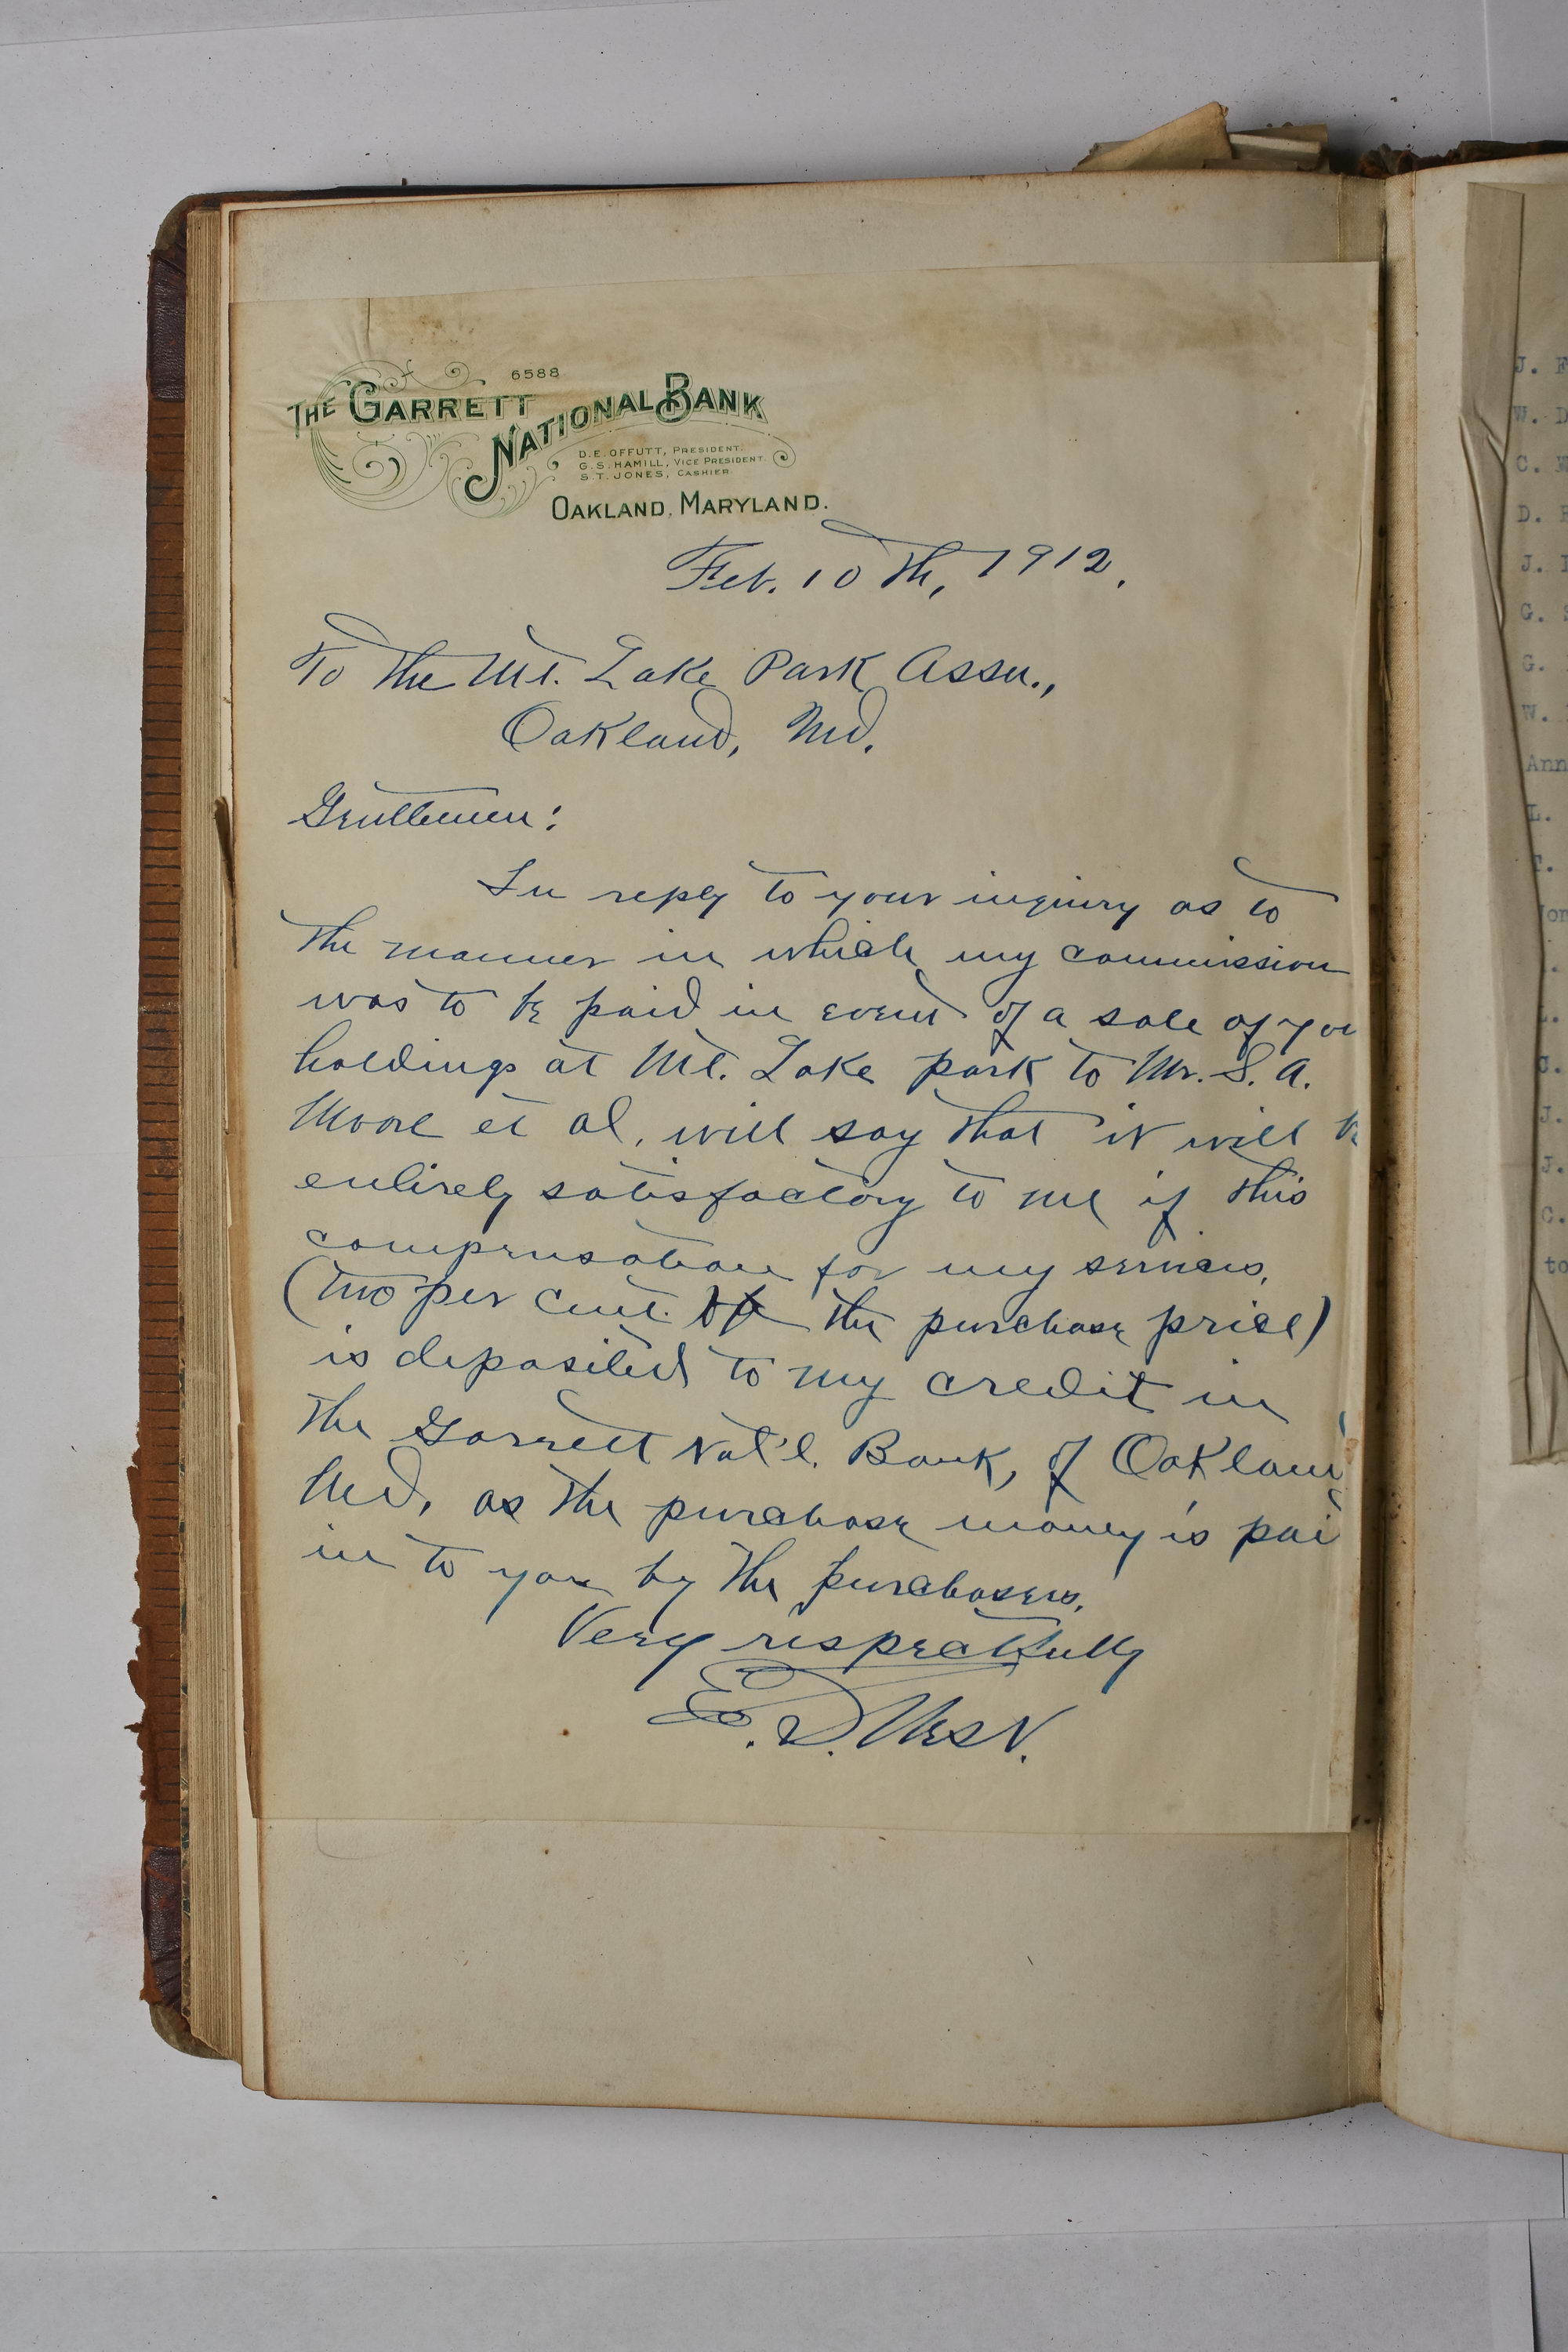 6588
THE GARRETT NATIONAL BANK
D.E. OFFUTT, PRESIDENT.
G.S. HAMILL, VICE PRESIDENT.
S.T. JONES, CASHIER.
OAKLAND, MARYLAND.
Feb. 10th, 1912.
To the Mt. Lake Park Assn.,
Oakland, Md.
Gentlemen:
In reply to your inquiry as to
the manner in which my commission
was to be paid in event of a sale of you
holdings at Mt. Lake park to Mr. S. A.
Moore et al, will say that it will b
entirely satisfactory to me if this
compensation for my services,
(two per cent. of the purchase price)
is deposited to my credit in
the Garrett Nat'l. Bank, of Oaklan
Md, as the purchase money is pai
in to you by the purchasers.
Very respectfully
E. D. West.
J. F
W. D
C. W
D.
J.
G.
G.
W.
Ann
L.
T.
J.
J.
C.
to